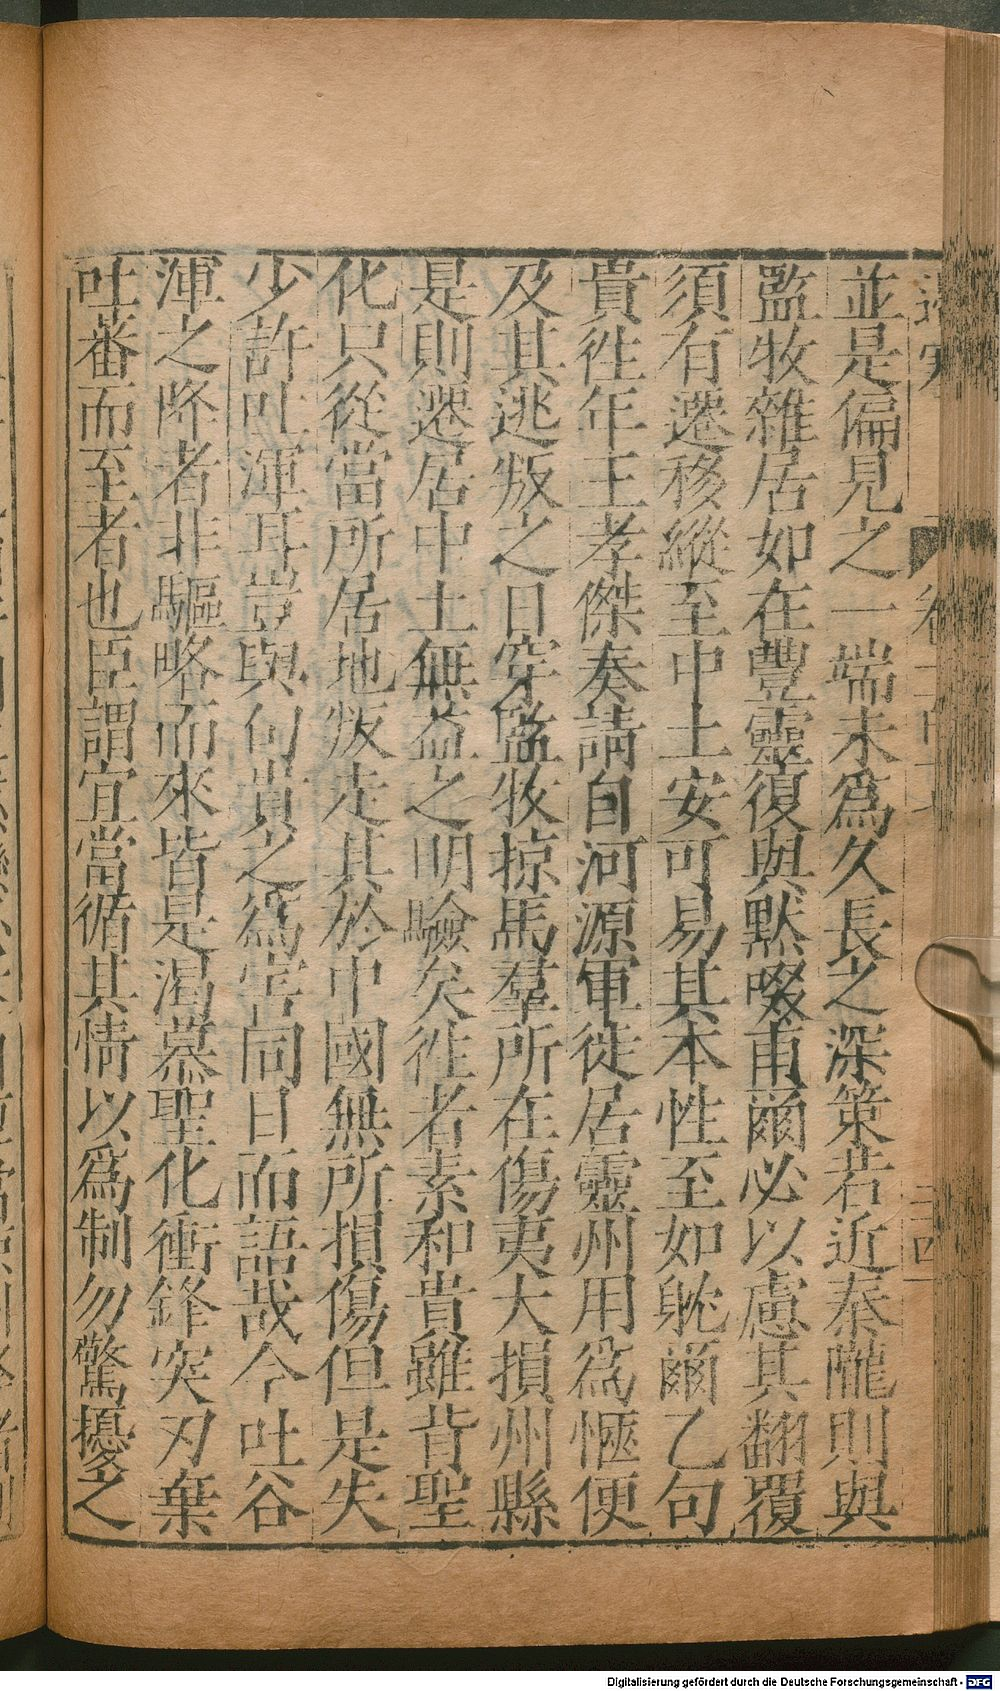 並是偏見之一端未爲久長之深策若近秦隴則與
監牧雜居如在豐靈復與默啜甫爾必以慮其翻覆
須有遷移縱至中土安可易其本性至如躭爾乙句
貴徃年王孝傑奏請自河源軍徙居靈州用爲愜便
及其逃叛之日穿監牧掠馬羣所在傷夷大損州縣
是則遷居中土無益之明驗矣徃者素和貴雖背聖
化只從當所居地叛走其於中國無所損傷但是失
少許吐渾耳豈與句貴之爲害同日而語哉今吐谷
渾之降者非驅略而來皆是渴慕聖化衝鋒突刃棄
吐蕃而至者也臣謂宜當循其情以爲制勿驚擾之
Digitalisierung gefördert durch die Deutsche Forschungsgemeinschaft - DFG